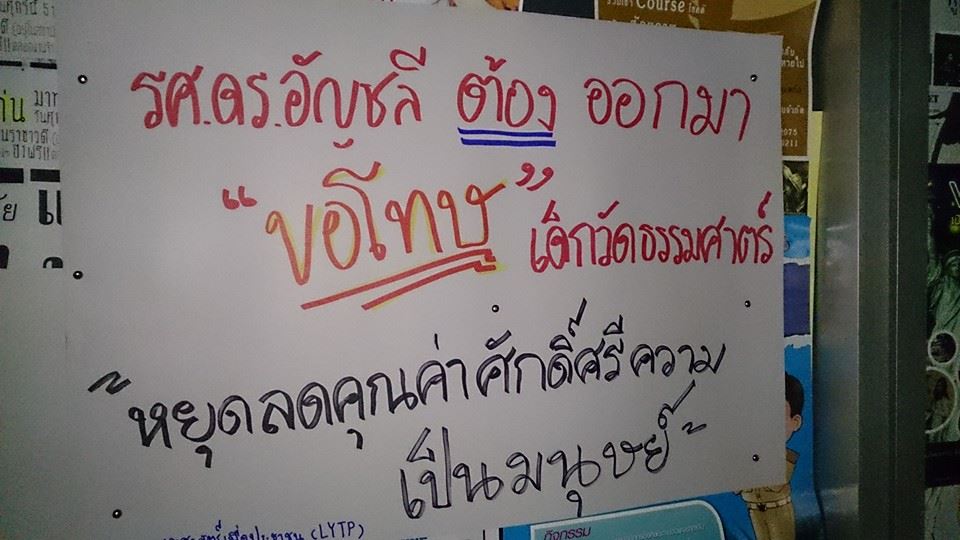 รศ.ดร.อัญชลี ต้อง ออกมา
"ขอโทษ" เด็กวัดธรรมศาตร์
"หยุดลดคุณค่าศักดิ์ศรีความ
เป็นมนุษย์"
(LYTP)
Course
กิจกรรม